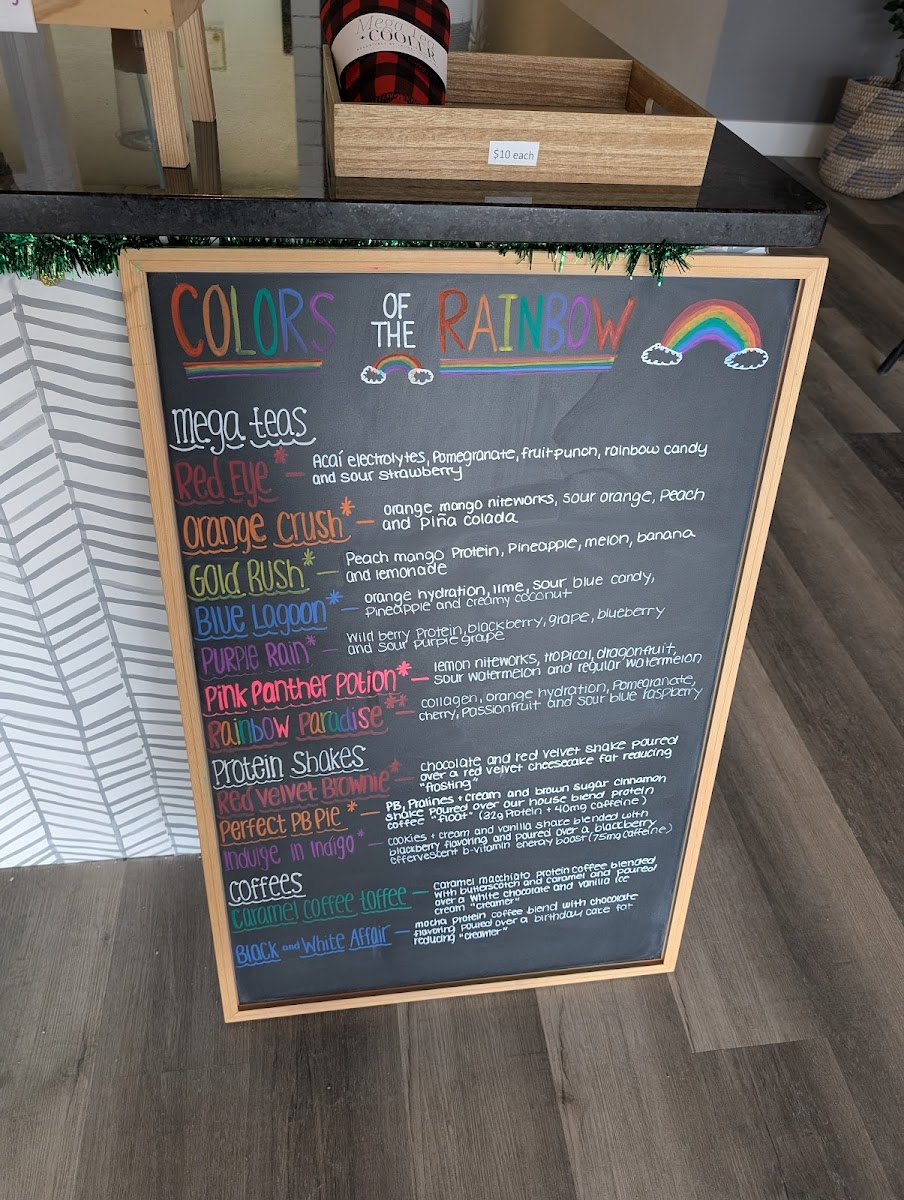 Mega Tea
+ COOLER
$10 each
COLORS OF THE RAINBOW
mega teas
Red Eye* — Acaí electrolytes, Pomegranate, fruit punch, rainbow candy
and sour strawberry
Orange Crush* — orange mango niteworks, sour orange, Peach
and Piña colada
Gold Rush* — Peach mango Protein, Pineapple, melon, banana
and lemonade
Blue Lagoon* — orange hydration, lime, sour blue candy,
Pineapple and creamy coconut
Purple Rain* — Wild berry Protein, blackberry, grape, blueberry
and sour purple grape
Pink Panther Potion* — lemon niteworks, tropical, dragonfruit,
sour watermelon and regular watermelon
Rainbow Paradise** — collagen, orange hydration, Pomegranate,
cherry, Passionfruit and sour blue raspberry
Protein Shakes
Red Velvet Brownie* — chocolate and red velvet shake poured
over a red velvet cheesecake fat reducing
"frosting"
Perfect PB Pie* — PB, Pralines + cream and brown sugar cinnamon
shake poured over our house blend protein
coffee "float" (32g Protein + 40mg caffeine)
Indulge in Indigo* — cookies + cream and vanilla shake blended with
blackberry flavoring and poured over a blackberry
effervescent b-vitamin energy boost (75mg caffeine)
coffees
Caramel Coffee Toffee — caramel macchiato protein coffee blended
with butterscotch and caramel and poured
over a white chocolate and vanilla ice
cream "creamer"
Black and White Affair — mocha protein coffee blend with chocolate
flavoring poured over a birthday cake fat
reducing "creamer"